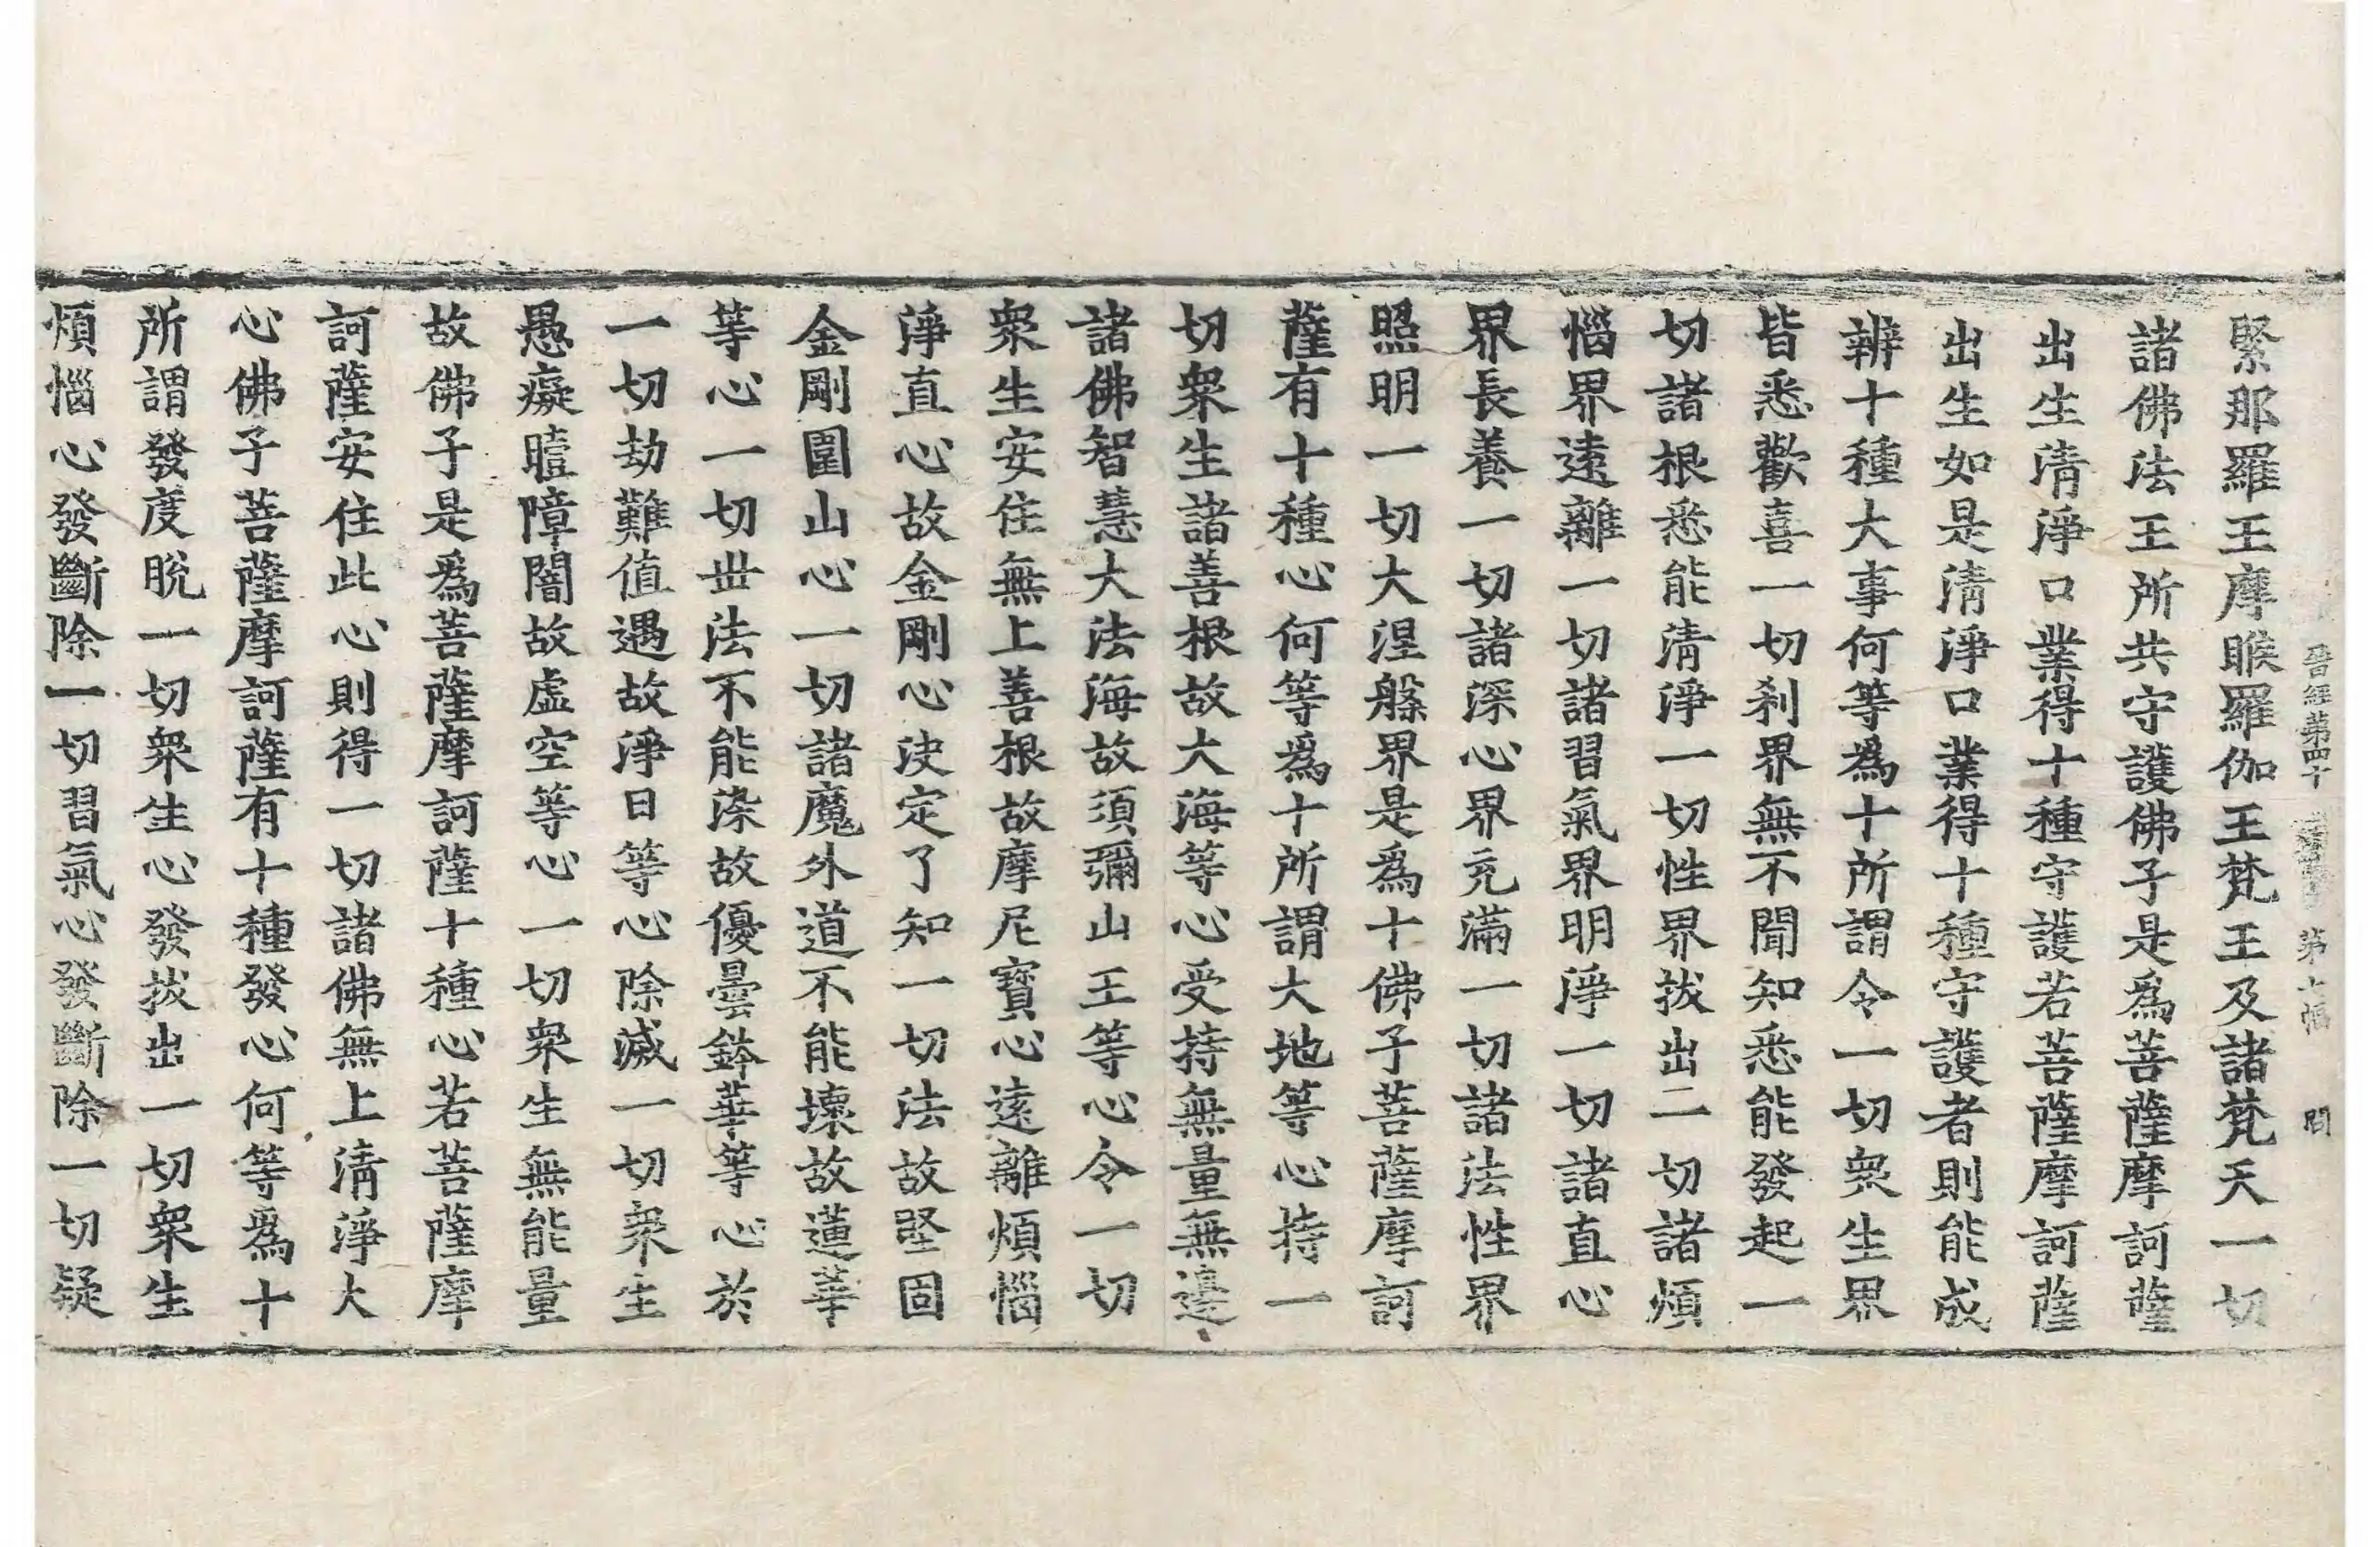 晉經第四十 第十幅 問
緊那羅王摩睺羅伽王梵王及諸梵天一切
諸佛法王所共守護佛子是為菩薩摩訶薩
出生清淨口業得十種守護若菩薩摩訶薩
出生如是清淨口業得十種守護者則能成
辨十種大事何等為十所謂令一切衆生界
皆悉歡喜一切刹界無不聞知悉能發起一
切諸根悉能清淨一切性界拔出二切諸煩
惱界遠離一切諸習氣界明淨一切諸直心
界長養一切諸深心界充滿一切諸法性界
照明一切大涅槃界是爲十佛子菩薩摩訶
薩有十種心何等爲十所謂大地等心持一
切衆生諸善根故大海等心受持無量無邊
諸佛智慧大法海故須彌山王等心令一切
衆生安住無上善根故摩尼寶心遠離煩惱
淨直心故金剛心決定了知一切法故堅固
金剛圍山心一切諸魔外道不能壞故蓮華
等心一切世法不能染故優曇鉢華等心於
一切劫難值遇故淨日等心除滅一切衆生
愚癡曀障闇故虛空等心一切衆生無能量
故佛子是爲菩薩摩訶薩十種心若菩薩摩
訶薩安住此心則得一切諸佛無上清淨大
心佛子菩薩摩訶薩有十種發心何等爲十
所謂發度脫一切衆生心發拔出一切衆生
煩惱心發斷除一切習氣心發斷除一切疑